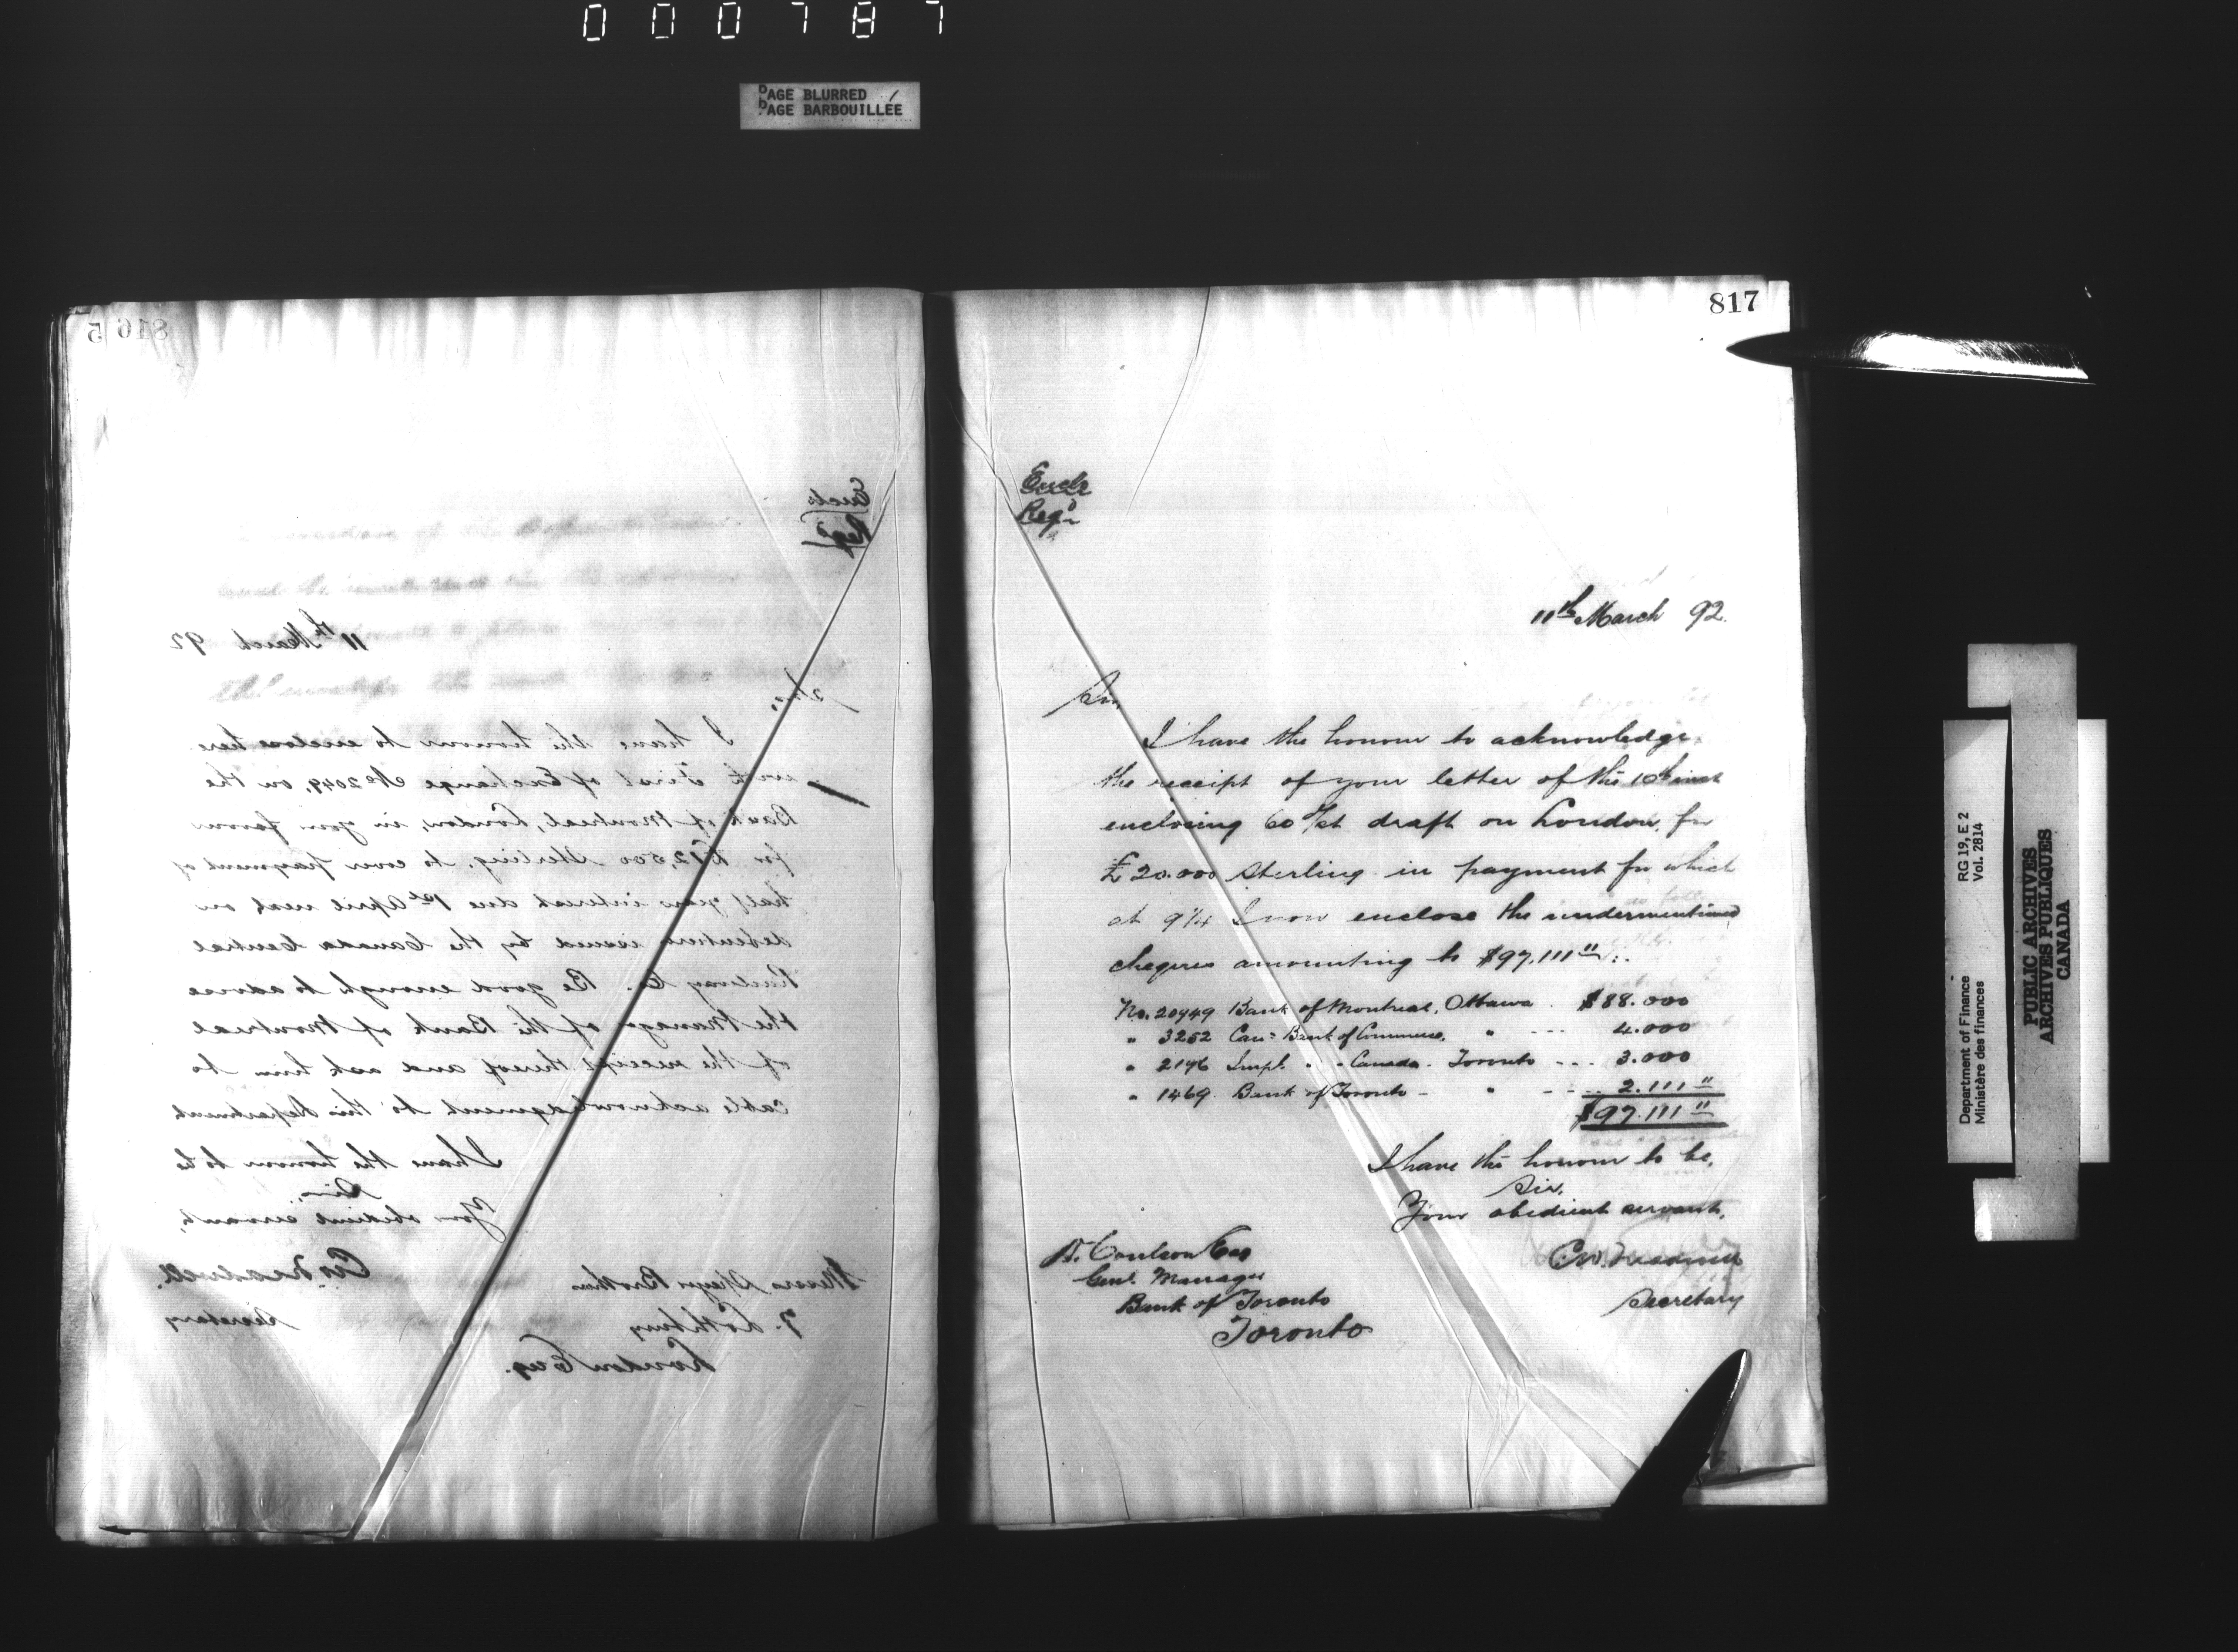 000787
PAGE BLURRED
PAGE BARBOUILLÉE
816 5
Encls
Regd
11th March 92
Sirs,
I have the honour to enclose here
with First of Exchange No 2049, on the
Bank of Montreal, London, in your favour
for £12,500 Sterling, to cover payment of
half years interest due 1st April next on
debentures issued by the Canada Central
Railway Co. Be good enough to advise
the Manager of the Bank of Montreal
of the receipt thereof and ask him to
cable acknowledgment to this Department
I have the honour to be
Sirs,
Your obedient servant,
Secretary
Messrs Speyer Brothers
7. Lothbury
London Eng.
817
Encls
Regd
11th March 92.
Sir,
I have the honour to acknowledge
the receipt of your letter of the 10th inst
enclosing 60 d/st draft on London, for
£20.000 Sterling in payment for which
at 9 1/4 I now enclose the undermentioned
cheques amounting to $97,111 11:.
No. 20949 Bank of Montreal, Ottawa . $88.000
" 3252 Can: Bank of Commerce, " --- 4.000
" 2196 Impl. " " Canada. Toronto --- 3.000
" 1469. Bank of Toronto - " --- 2.111 11
$97.111 11
I have the honour to be,
Sir,
Your obedient servant,
D. Coulson Esq
Genl. Manager
Bank of Toronto
Toronto
Secretary
Department of Finance RG 19, E 2
Ministère des finances Vol. 2814
PUBLIC ARCHIVES
ARCHIVES PUBLIQUES
CANADA